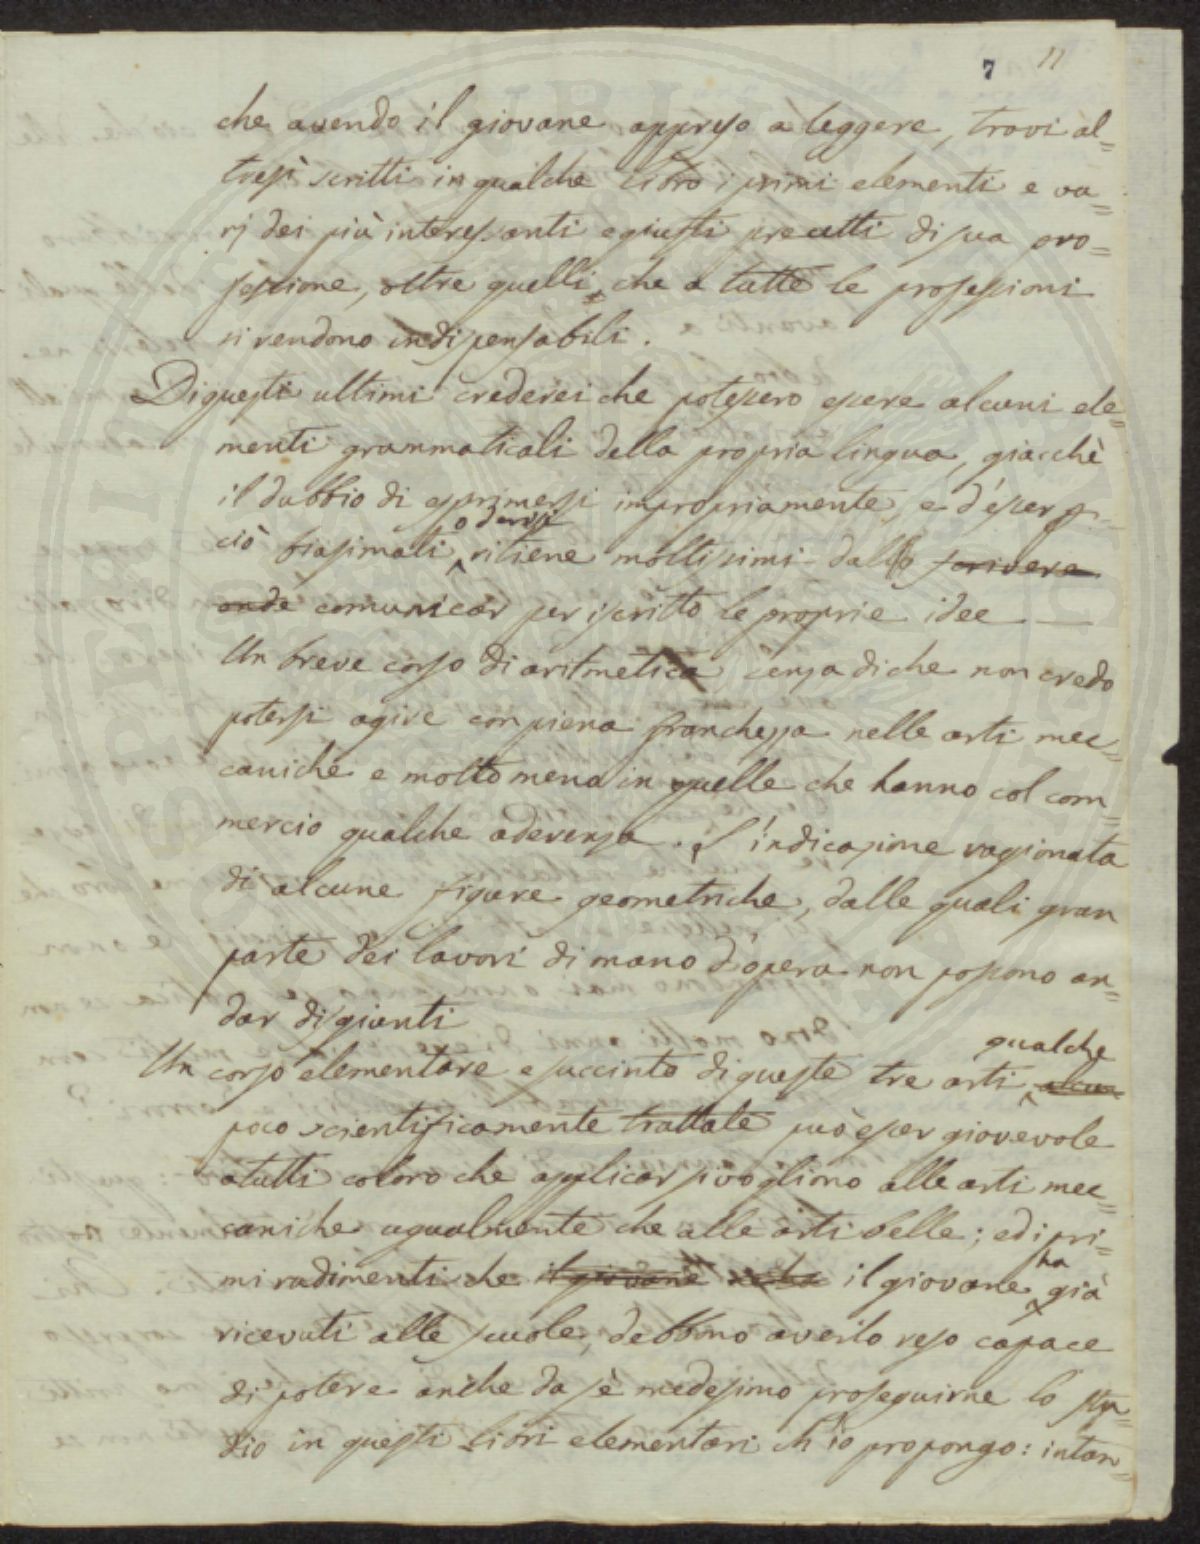 7 11
che avendo il giovane appreso à leggere, trovi al=
tresì scritti in qualche Libro i primi elementi e va=
rj dei più interessanti e giusti precetti di sua pro=
fessione, oltre quelli, che a tutte le professioni
si rendono indispensabili.
Di questi ultimi crederei che potessero essere alcuni ele=
menti grammaticali della propria lingua, giacchè
il dubbio di esprimersi impropriamente, e d'esser p.
o derisi
ciò biasimati ritiene moltissimi dallo scrivere
onde comunicar per iscritto le proprie idee —
Un breve corso di aritmetica senza di che non credo
potersi agire con piena franchezza nelle arti mec=
caniche e molto meno in quelle che hanno col com=
mercio qualche aderenza. L'indicazione ragionata
di alcune figure geometriche, dalle quali gran
parte dei lavori di mano d'opera non possono an=
dar disgiunti
qualche
Un corso elementare e succinto di queste tre arti, alcun
poco scientificamente trattate può esser giovevole
a tutti coloro che applicar si vogliono alle arti mec=
caniche ugualmente che alle arti belle; ed i pri=
ha
mi rudimenti che il giovane il giovane già
ricevuti alle scuole, debbono averlo reso capace
di potere anche da sè medesimo proseguirne lo stu=
dio in questi Libri elementari ch'io propongo: intan=